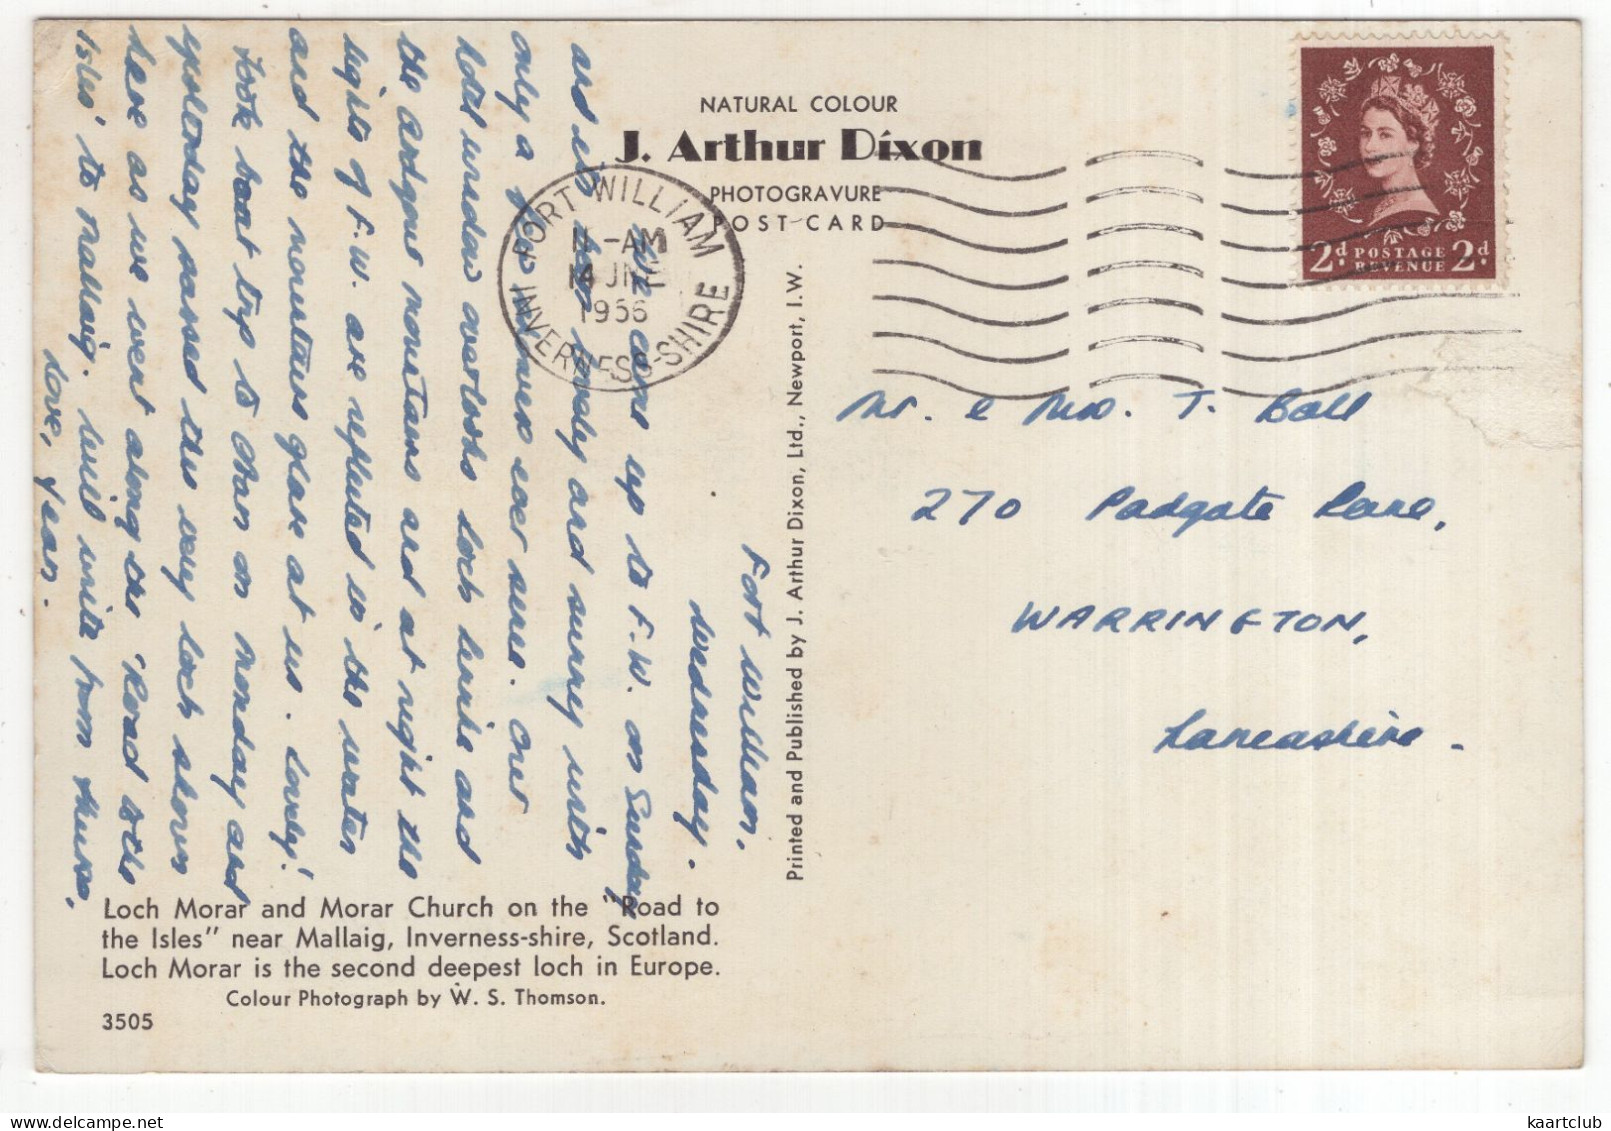 NATURAL COLOUR
J. Arthur Dixon
PHOTOGRAVURE
POST CARD
FORT WILLIAM
11-AM
14 JNE
1956
INVERNESS-SHIRE
2d POSTAGE REVENUE 2d
Fort William.
Wednesday.
We came up to F.W. on Sunday
and it's been lovely and sunny with
only a few showers ever since. Our
hotel window overlooks Loch Linnhe and
the Ardgour mountains and at night the
lights of F.W. are reflected in the water
and the mountains glare at us. Lovely!
Took boat trip to Oban on Monday and
yesterday passed this very loch shown
here as we went along the 'Road to the
Isles' to Mallaig. Will write from Thurso.
Love, Jean.
Printed and Published by J. Arthur Dixon, Ltd., Newport, I.W.
Mr. & Mrs. T. Ball
270 Padgate Lane,
WARRINGTON,
Lancashire.
Loch Morar and Morar Church on the "Road to
the Isles" near Mallaig, Inverness-shire, Scotland.
Loch Morar is the second deepest loch in Europe.
Colour Photograph by W. S. Thomson.
3505
kaartclub